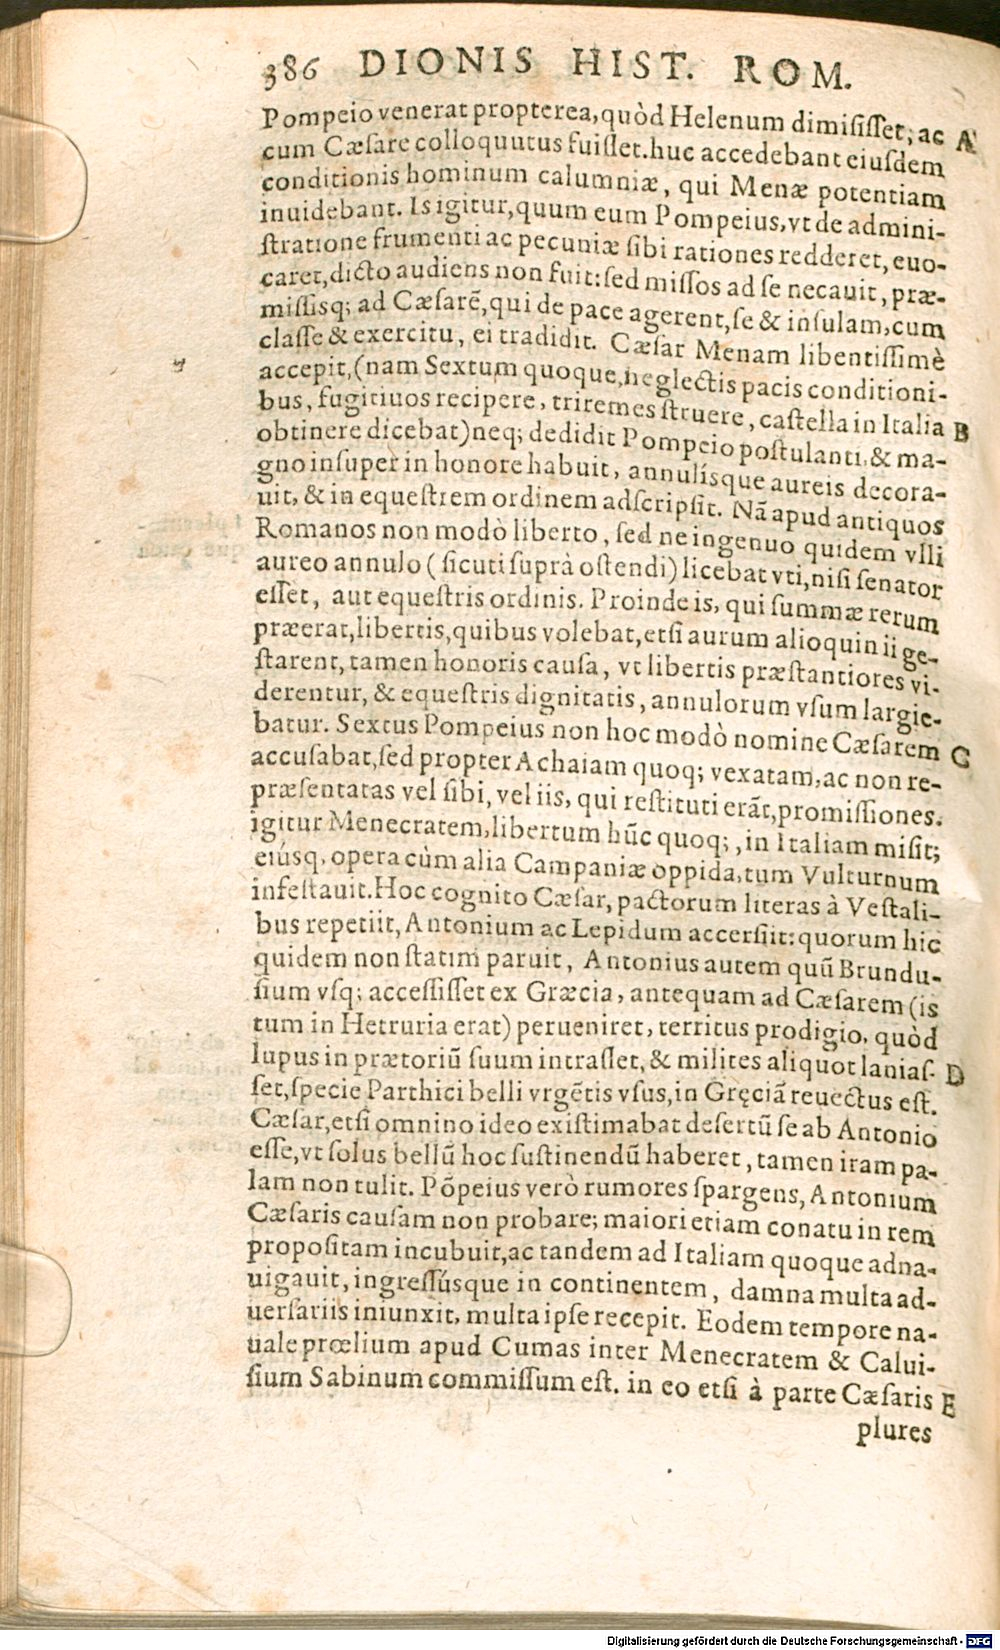 386 DIONIS HIST. ROM.
Pompeio venerat propterea, quòd Helenum dimisisset, ac A
cum Cæsare colloquutus fuisset. huc accedebant eiusdem
conditionis hominum calumniæ, qui Menæ potentiam
inuidebant. Is igitur, quum eum Pompeius, vt de admini-
stratione frumenti ac pecuniæ sibi rationes redderet, euo-
caret, dicto audiens non fuit: sed missos ad se necauit, præ-
missisq; ad Cæsarē, qui de pace agerent, se & insulam, cum
classe & exercitu, ei tradidit. Cæsar Menam libentissimè
accepit, (nam Sextum quoque, neglectis pacis conditioni-
bus, fugitiuos recipere, triremes struere, castella in Italia B
obtinere dicebat) neq; dedidit Pompeio postulanti, & ma-
gno insuper in honore habuit, annulísque aureis decora-
uit, & in equestrem ordinem adscripsit. Nā apud antiquos
Romanos non modò liberto, sed ne ingenuo quidem vlli
aureo annulo (sicuti suprà ostendi) licebat vti, nisi senator
esset, aut equestris ordinis. Proinde is, qui summæ rerum
præerat, libertis, quibus volebat, etsi aurum alioquin ii ge-
starent, tamen honoris causa, vt libertis præstantiores vi-
derentur, & equestris dignitatis, annulorum vsum largie-
batur. Sextus Pompeius non hoc modò nomine Cæsarem C
accusabat, sed propter Achaiam quoq; vexatam, ac non re-
præsentatas vel sibi, vel iis, qui restituti erāt, promissiones.
igitur Menecratem, libertum hūc quoq;, in Italiam misit;
eiúsq, opera cùm alia Campaniæ oppida, tum Vulturnum
infestauit. Hoc cognito Cæsar, pactorum literas à Vestali-
bus repetiit, Antonium ac Lepidum accersiit: quorum hic
quidem non statim paruit, Antonius autem quū Brundu-
sium vsq; accessisset ex Græcia, antequam ad Cæsarem (is
tum in Hetruria erat) perueniret, territus prodigio, quòd
lupus in prætoriū suum intrasset, & milites aliquot lanias- D
set, specie Parthici belli vrgētis vsus, in Gręciā reuectus est.
Cæsar, etsi omnino ideo existimabat desertū se ab Antonio
esse, vt solus bellū hoc sustinendū haberet, tamen iram pa-
lam non tulit. Pōpeius verò rumores spargens, Antonium
Cæsaris causam non probare; maiori etiam conatu in rem
propositam incubuit, ac tandem ad Italiam quoque adna-
uigauit, ingressúsque in continentem, damna multa ad-
uersariis iniunxit, multa ipse recepit. Eodem tempore na-
uale prœlium apud Cumas inter Menecratem & Calui-
sium Sabinum commissum est. in eo etsi à parte Cæsaris E
plures
Digitalisierung gefördert durch die Deutsche Forschungsgemeinschaft - DFG